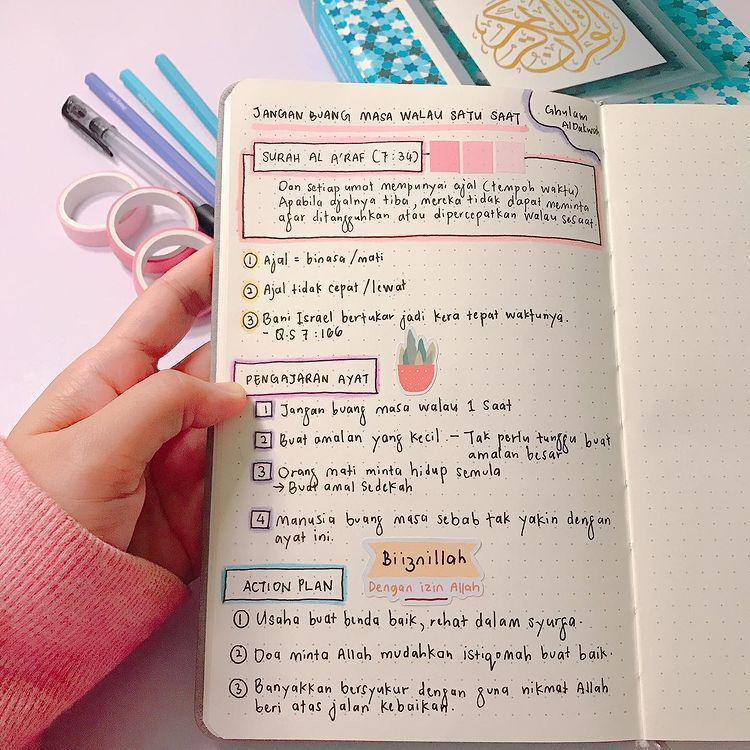 JANGAN BUANG MASA WALAU SATU SAAT
Ghulam
Al Dakwah
SURAH AL A'RAF (7:34)
Dan setiap umat mempunyai ajal (tempoh waktu)
Apabila ajalnya tiba, mereka tidak dapat meminta
agar ditangguhkan atau dipercepatkan walau sesaat.
1 Ajal = binasa/mati
2 Ajal tidak cepat/lewat
3 Bani Israel bertukar jadi kera tepat waktunya.
- Q.S 7:166
PENGAJARAN AYAT
1 Jangan buang masa walau 1 saat
2 Buat amalan yang kecil - Tak perlu tunggu buat
amalan besar
3 Orang mati minta hidup semula
→ Buat amal sedekah
4 Manusia buang masa sebab tak yakin dengan
ayat ini.
Biiznillah
Dengan izin Allah
ACTION PLAN
1 Usaha buat benda baik, rehat dalam syurga.
2 Doa minta Allah mudahkan istiqomah buat baik.
3 Banyakkan bersyukur dengan guna nikmat Allah
beri atas jalan kebaikan.